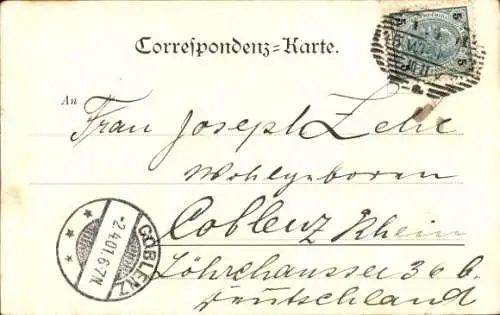 Correspondenz-Karte.
5 5
An
Frau Joseph Zehe
Wohlgeboren
Coblenz Rhein
Löhrchaussee 36 b.
Deutschland
* * *
-2.4.01.6-7N.
COBLENZ